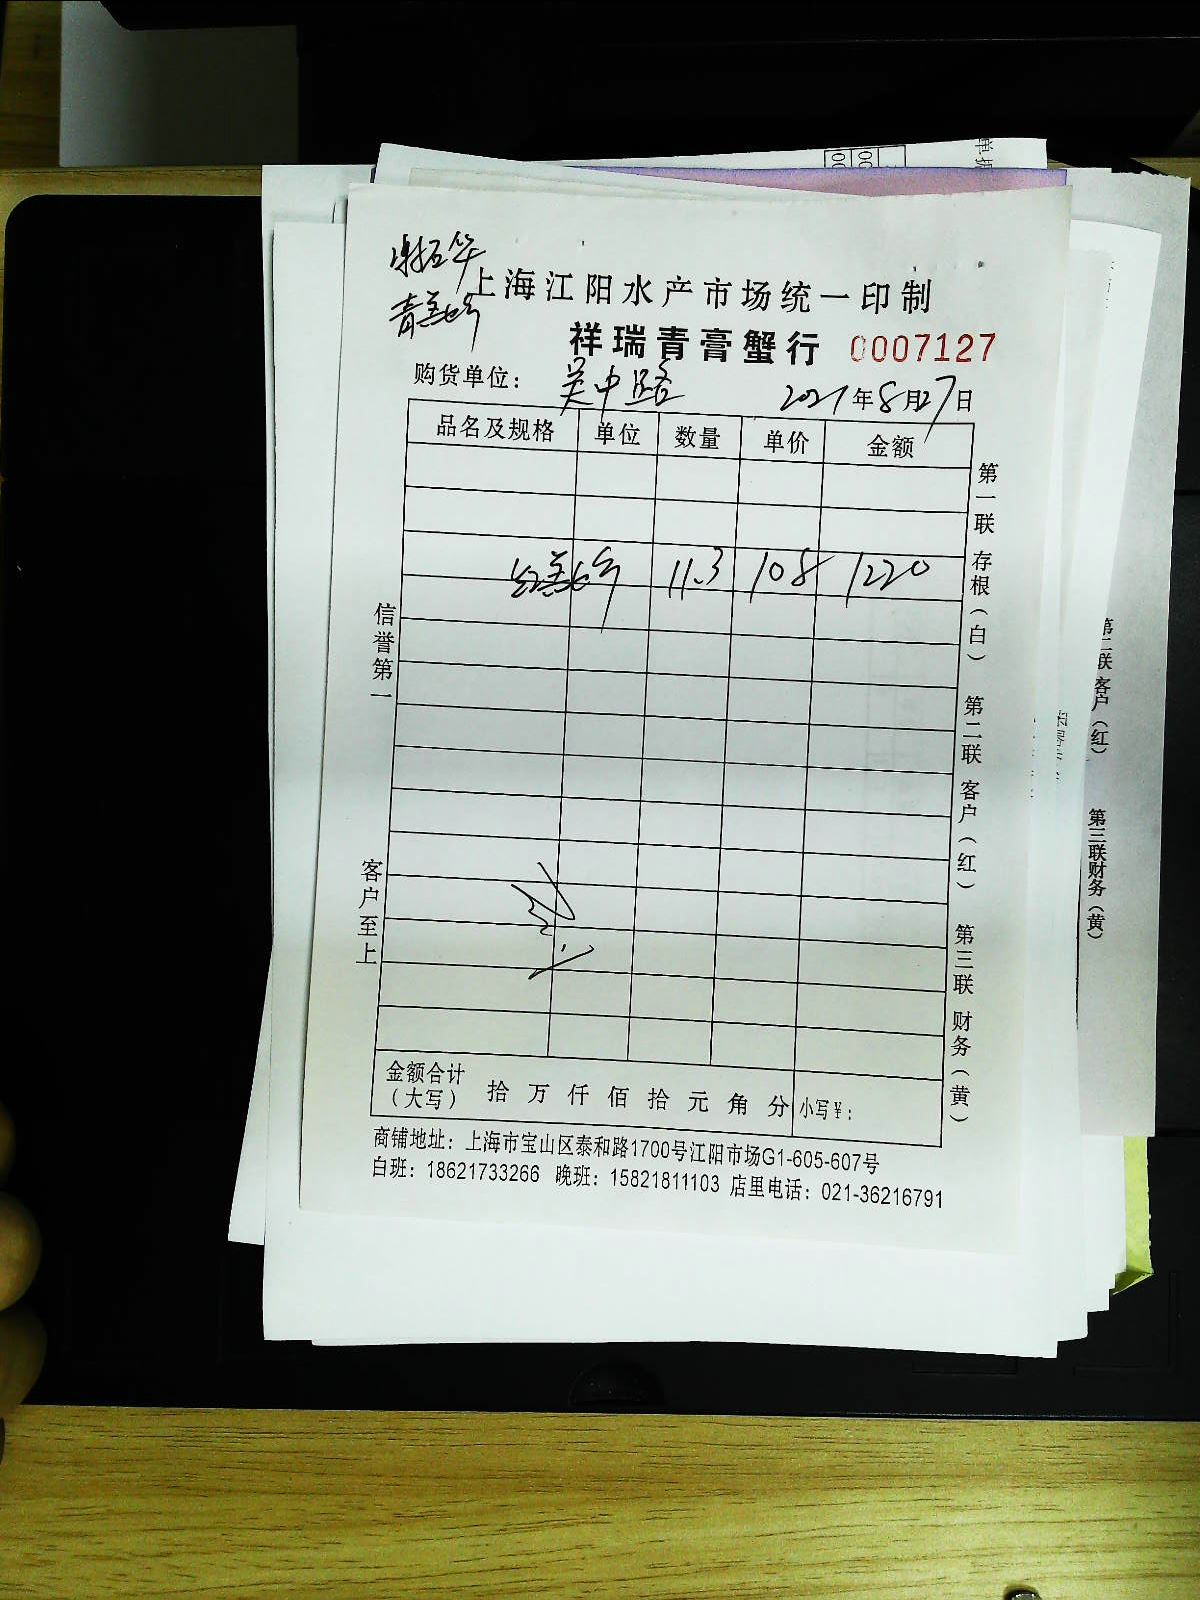 上海江阳水产市场统一印制
祥瑞青膏蟹行 0007127
购货单位： 吴中路 2021年8月27日
品名及规格 单位 数量 单价 金额
11.3 108 1220
信誉第一
客户至上
第一联 存根（白） 第二联 客户（红） 第三联 财务（黄）
金额合计（大写） 拾 万 仟 佰 拾 元 角 分 小写￥：
商铺地址：上海市宝山区泰和路1700号江阳市场G1-605-607号
白班：18621733266 晚班：15821811103 店里电话：021-36216791
第二联客户（红）
第三联财务（黄）